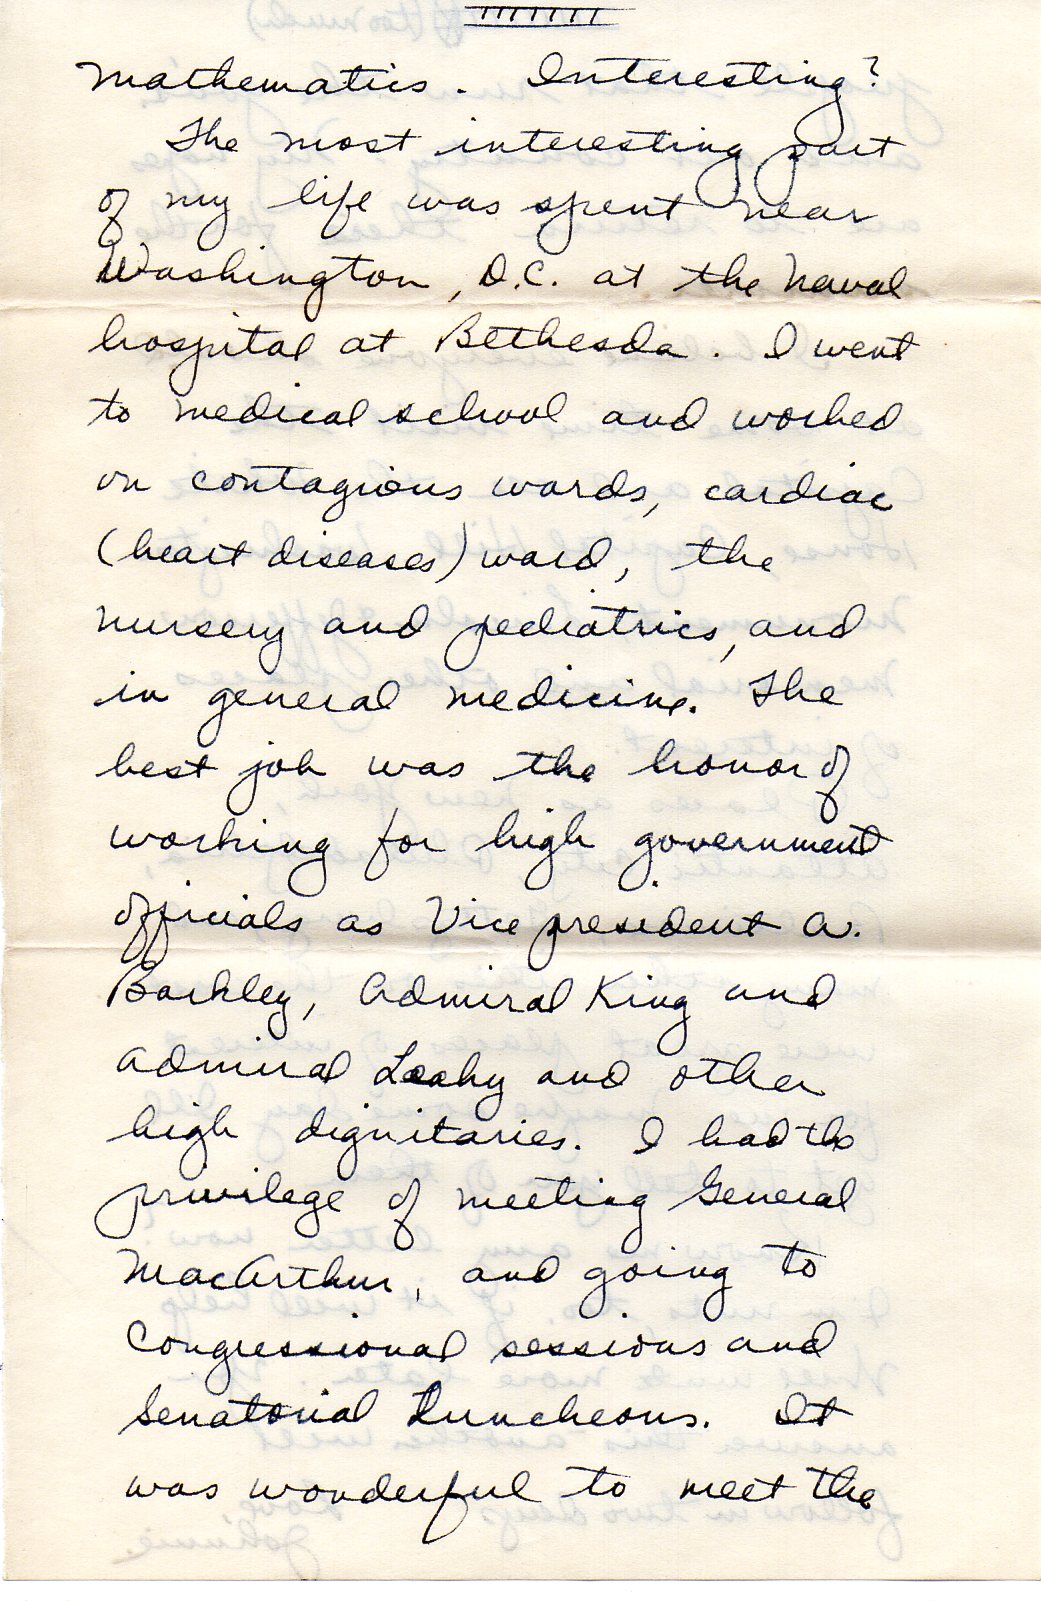 Mathematics. Interesting?
The most interesting part
of my life was spent near
Washington, D.C. at the Naval
hospital at Bethesda. I went
to medical school and worked
on contagious wards, cardiac
(heart diseases) ward, the
nursery and pediatrics, and
in general medicine. The
best job was the honor of
working for high government
officials as Vice president A.
Barkley, Admiral King and
Admiral Leahy and other
high dignitaries. I had the
privilege of meeting General
MacArthur, and going to
Congressional sessions and
Senatorial Luncheons. It
was wonderful to meet the